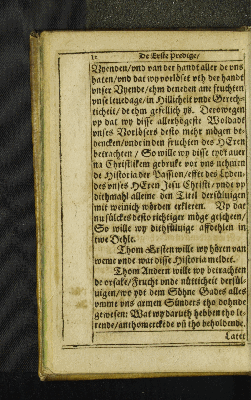 De Erste Predige/
Vyenden/vnd van der handt aller de vns
haten/vnd dat wy vorlöset vth der handt
vnser Vyende/ehm deneden ane fruchten
vnse leuedage/in Hillicheit vnde Gerech-
ticheit/de ehm gefellich ys. Derowegen
vp dat wy disse allerhögeste Woldadt
vnses Vorlösers desto mehr mögen be-
dencken/vnde in den fruchten des HEren
betrachten / So wille wy disse tydt auer
na Christlikem gebruke vor vns nehmen
de Historia der Passion/effte des Lyden-
des vnses HEren Jesu Christi/vnde vp
dithmahl alleine den Titel dersüluigen
mit weinich wörden erkleren. Vp dat
nu sülckes desto richtiger möge geschen/
So wille wy dithsüluige affdehlen in
twe Dehle.
Thom Ersten wille wy hören van
weme vnde wat disse Historia meldet.
Thom Andern wille wy betrachten
de orsake/Frucht vnde nütticheit dersül-
uigen/wo ydt dem Söhne Gades alles
vmme vns armen Sünders tho dohnde
gewesen: Wat wy daruth hebben tho le-
rende/anthomerckede vñ tho beholdende.
Latet